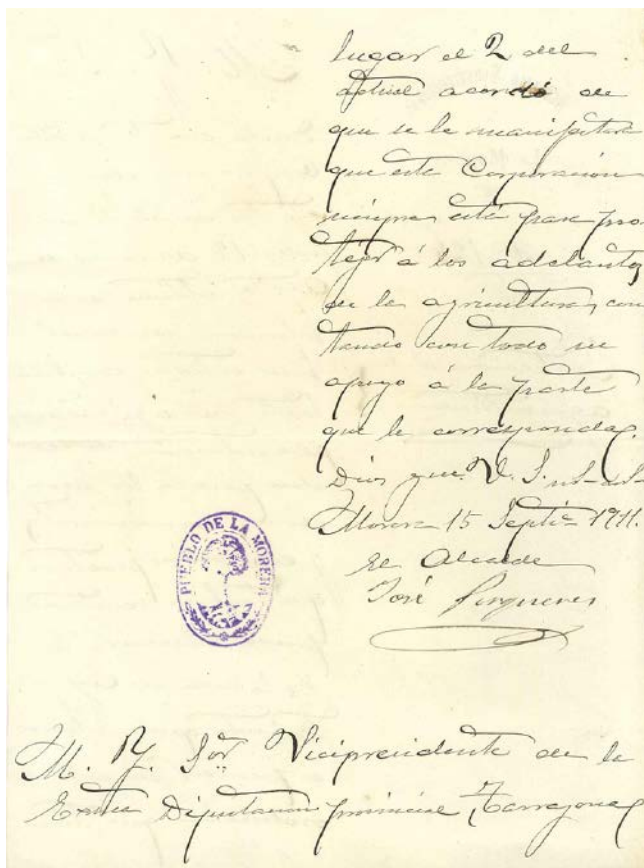 lugar el 2 del
actual acordó de
que se le manifestara
que esta Corporación
siempre está para pro-
tejer á los adelantos
en la agricultura, con
tando con todo su
apoyo á la parte
que le corresponda.
Dios gue. V. S. ms. as.
Morera 15 Septi 1911.
El Alcalde
José
PUEBLO DE LA MORERA
M. Y. Sor. Vicipresidente de la
Exma Diputacion provincial, Tarragona